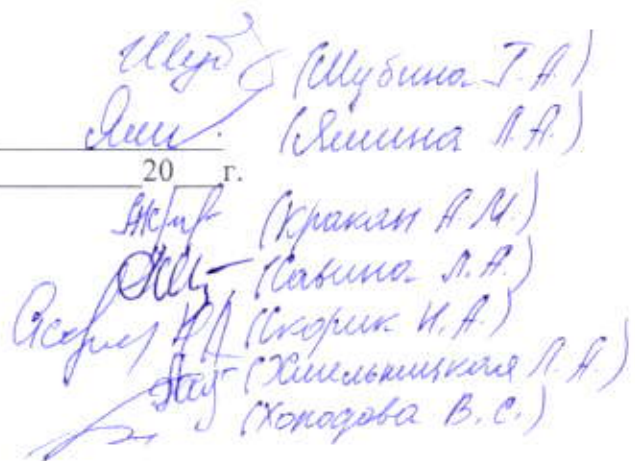 Шуб (Шубина Т.А)
Ями (Ямина Л.А)
20 г.
(Кракан А.М.)
(Савина Л.А.)
(Скорик Н.А.)
(Хмельницкая Л.А.)
(Холодова В.С.)